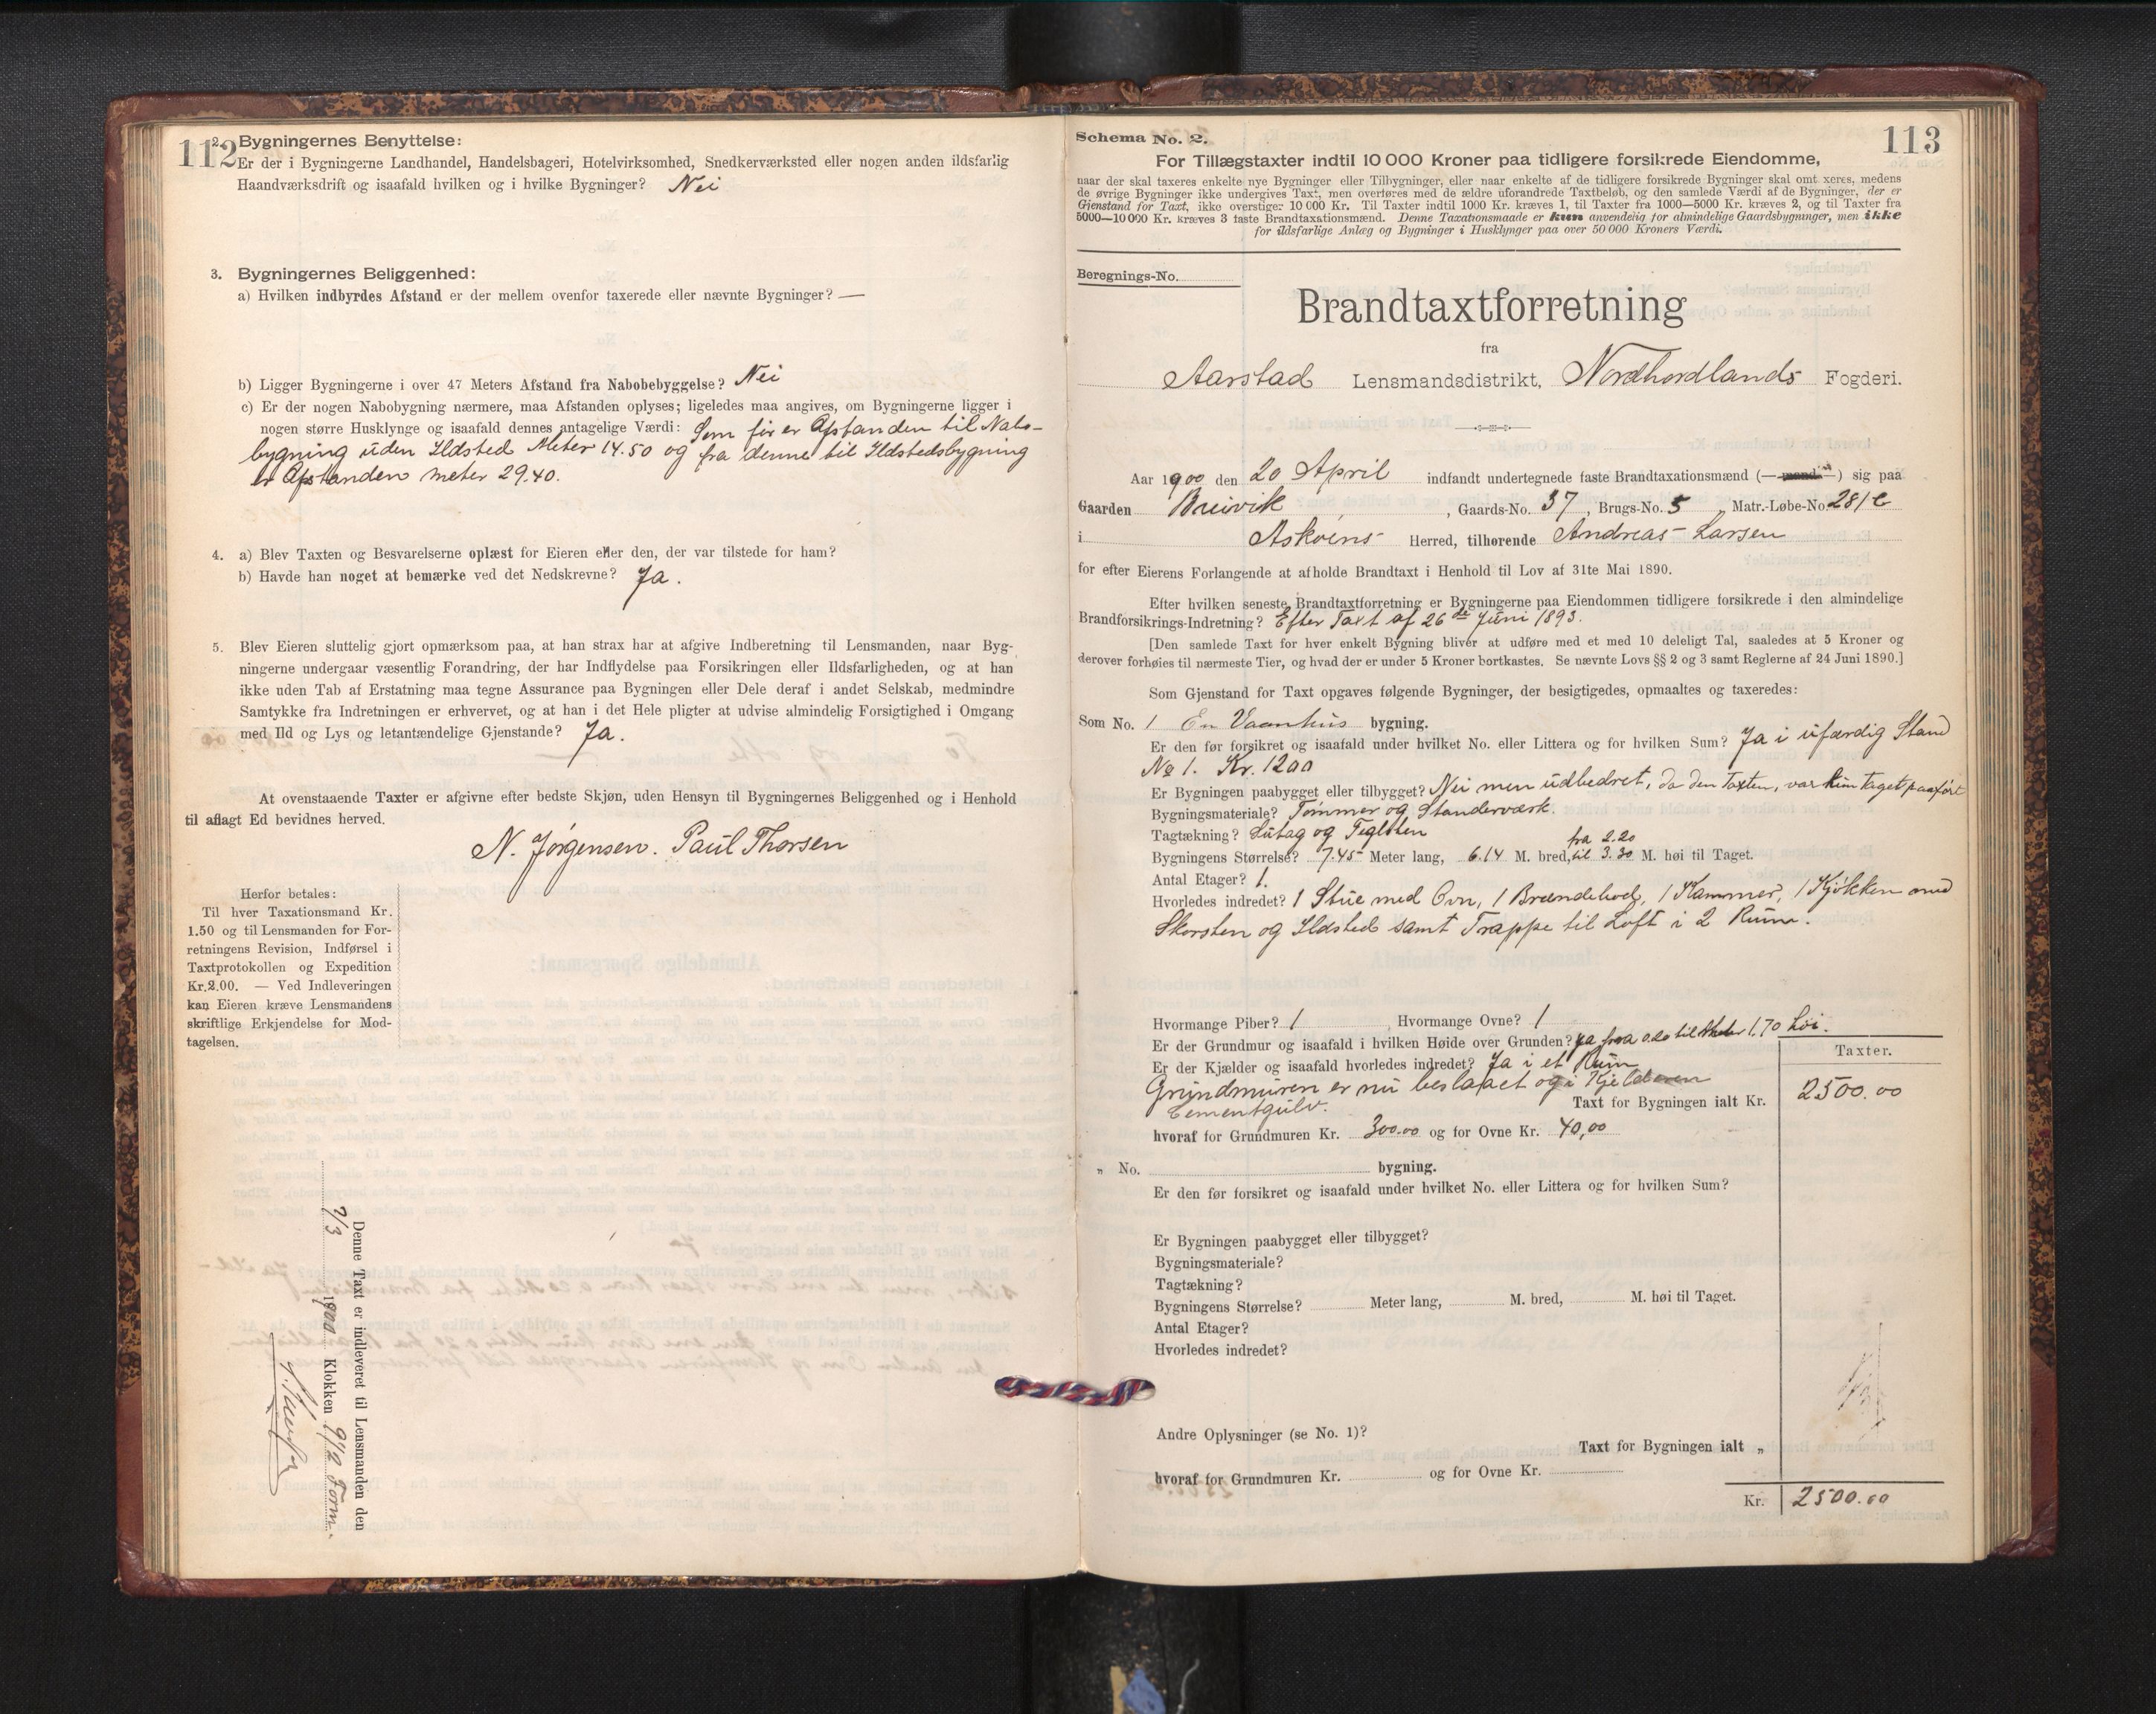 112
2. Bygningernes Benyttelse:
Er der i Bygningerne Landhandel, Handelsbageri, Hotelvirksomhed, Snedkerværksted eller nogen anden ildsfarlig
Haandværksdrift og isaafald hvilken og i hvilke Bygninger? Nei
3. Bygningernes Beliggenhed:
a) Hvilken indbyrdes Afstand er der mellem ovenfor taxerede eller nævnte Bygninger? —
b) Ligger Bygningerne i over 47 Meters Afstand fra Nabobebyggelse? Nei
c) Er der nogen Nabobygning nærmere, maa Afstanden oplyses; ligeledes maa angives, om Bygningerne ligger i
nogen større Husklynge og isaafald dennes antagelige Værdi: Som før er Afstanden til Nabo-
bygning uden Ildsted Meter 14.50 og fra denne til Ildstedsbygning
er Afstanden meter 29.40.
4. a) Blev Taxten og Besvarelserne oplæst for Eieren eller den, der var tilstede for ham?
b) Havde han noget at bemærke ved det Nedskrevne? Ja.
5. Blev Eieren sluttelig gjort opmærksom paa, at han strax har at afgive Indberetning til Lensmanden, naar Byg-
ningerne undergaar væsentlig Forandring, der har Indflydelse paa Forsikringen eller Ildsfarligheden, og at han
ikke uden Tab af Erstatning maa tegne Assurance paa Bygningen eller Dele deraf i andet Selskab, medmindre
Samtykke fra Indretningen er erhvervet, og at han i det Hele pligter at udvise almindelig Forsigtighed i Omgang
med Ild og Lys og letantændelige Gjenstande? Ja.
At ovenstaaende Taxter er afgivne efter bedste Skjøn, uden Hensyn til Bygningernes Beliggenhed og i Henhold
til aflagt Ed bevidnes herved.
N. Jørgensen. Paul Thorsen
Herfor betales:
Til hver Taxationsmand Kr.
1.50 og til Lensmanden for For-
retningens Revision, Indførsel i
Taxtprotokollen og Expedition
Kr. 2.00. — Ved Indleveringen
kan Eieren kræve Lensmandens
skriftlige Erkjendelse for Mod-
tagelsen.
Denne Taxt er indleveret til Lensmanden den
7/3 1900 Klokken 9 1/2 Form.
113
Schema No. 2.
For Tillægstaxter indtil 10 000 Kroner paa tidligere forsikrede Eiendomme,
naar der skal taxeres enkelte nye Bygninger eller Tilbygninger, eller naar enkelte af de tidligere forsikrede Bygninger skal omt xeres, medens
de øvrige Bygninger ikke undergives Taxt, men overføres med de ældre uforandrede Taxtbeløb, og den samlede Værdi af de Bygninger, der er
Gjenstand for Taxt, ikke overstiger 10 000 Kr. Til Taxter indtil 1000 Kr. kræves 1, til Taxter fra 1000—5000 Kr. kræves 2, og til Taxter fra
5000—10 000 Kr. kræves 3 faste Brandtaxationsmænd. Denne Taxationsmaade er kun anvendelig for almindelige Gaardsbygninger, men ikke
for ildsfarlige Anlæg og Bygninger i Husklynger paa over 50 000 Kroners Værdi.
Beregnings-No.
Brandtaxtforretning
fra
Aarstad Lensmandsdistrikt, Nordhordlands Fogderi.
Aar 1900 den 20 April indfandt undertegnede faste Brandtaxationsmænd (— mand —) sig paa
Gaarden Breivik, Gaards-No. 37, Brugs-No. 5, Matr.-Løbe-No. 281c
i Askøens Herred, tilhørende Andreas Larsen
for efter Eierens Forlangende at afholde Brandtaxt i Henhold til Lov af 31te Mai 1890.
Efter hvilken seneste Brandtaxtforretning er Bygningerne paa Eiendommen tidligere forsikrede i den almindelige
Brandforsikrings-Indretning? Efter Taxt af 26de Juni 1893.
[Den samlede Taxt for hver enkelt Bygning bliver at udføre med et med 10 deleligt Tal, saaledes at 5 Kroner og
derover forhøies til nærmeste Tier, og hvad der er under 5 Kroner bortkastes. Se nævnte Lovs §§ 2 og 3 samt Reglerne af 24 Juni 1890.]
Som Gjenstand for Taxt opgaves følgende Bygninger, der besigtigedes, opmaaltes og taxeredes:
Som No. 1 En Vaanhus bygning.
Er den før forsikret og isaafald under hvilket No. eller Littera og for hvilken Sum? Ja i ufærdig Stand
No 1. Kr. 1200
Er Bygningen paabygget eller tilbygget? Nei men udbedret, da den Taxten, var kun taget paaført
Bygningsmateriale? Tømmer og Standerværk.
Tagtækning? Sutag og Teglsten
Bygningens Størrelse? 7.45 Meter lang, 6.14 M. bred, fra 2.20 til 3.30 M. høi til Taget.
Antal Etager? 1.
Hvorledes indredet? 1 Stue med Ovn, 1 Brændebod, 1 Kammer, 1 Kjøkken med
Skorsten og Ildsted samt Trappe til Loft i 2 Rum.
Hvormange Piber? 1, Hvormange Ovne? 1
Er der Grundmur og isaafald i hvilken Høide over Grunden? Ja fra 0.20 til Meter 1.70 høi.
Er der Kjælder og isaafald hvorledes indredet? Ja i et Rum
Taxter.
Grundmuren er nu beslaaet og i Kjelderen
Cementgulv.
Taxt for Bygningen ialt Kr. 2500.00
hvoraf for Grundmuren Kr. 300.00 og for Ovne Kr. 40,00
„ No. bygning.
Er den før forsikret og isaafald under hvilket No. eller Littera og for hvilken Sum?
Er Bygningen paabygget eller tilbygget?
Bygningsmateriale?
Tagtækning?
Bygningens Størrelse? Meter lang, M. bred, M. høi til Taget.
Antal Etager?
Hvorledes indredet?
Andre Oplysninger (se No. 1)?
Taxt for Bygningen ialt „
hvoraf for Grundmuren Kr. og for Ovne Kr.
Kr. 2500.00